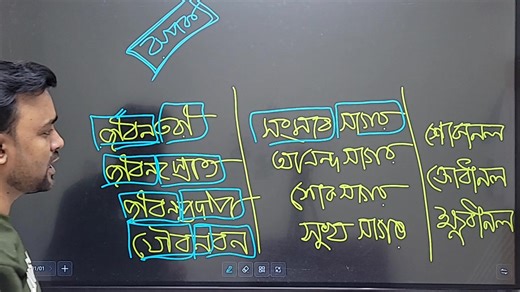 রূপক
জীবনতরী
জীবনস্রোত
জীবনপ্রদীপ
যৌবনবন
সংসার সাগর
আনন্দ সাগর
শোকসাগর
সুখ সাগর
শোকানল
ক্রোধানল
ক্ষুধানল
01/01